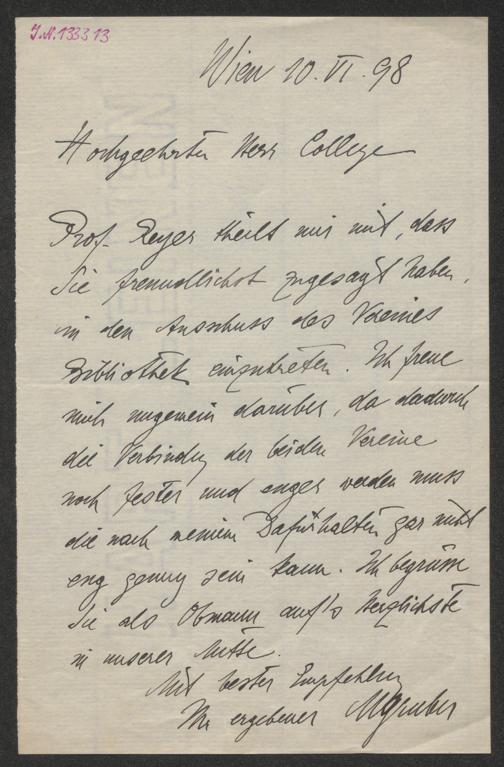 J.N. 133313
Wien 10. VI. 98
Hochgeehrter Herr College
Prof. Reyer theilt mir mit, dass
Sie freundlichst zugesagt haben,
in den Ausschuss des Vereines
Bibliothek einzutreten. Ich freue
mich ungemein darüber, da dadurch
die Verbindung der beiden Vereine
noch fester und enger werden muss
die nach meinem Dafürhalten gar nicht
eng genug sein kann. Ich begrüsse
Sie als Obmann auf's Herzlichste
in unserer Mitte.
Mit bester Empfehlung
Ihr ergebener MGruber